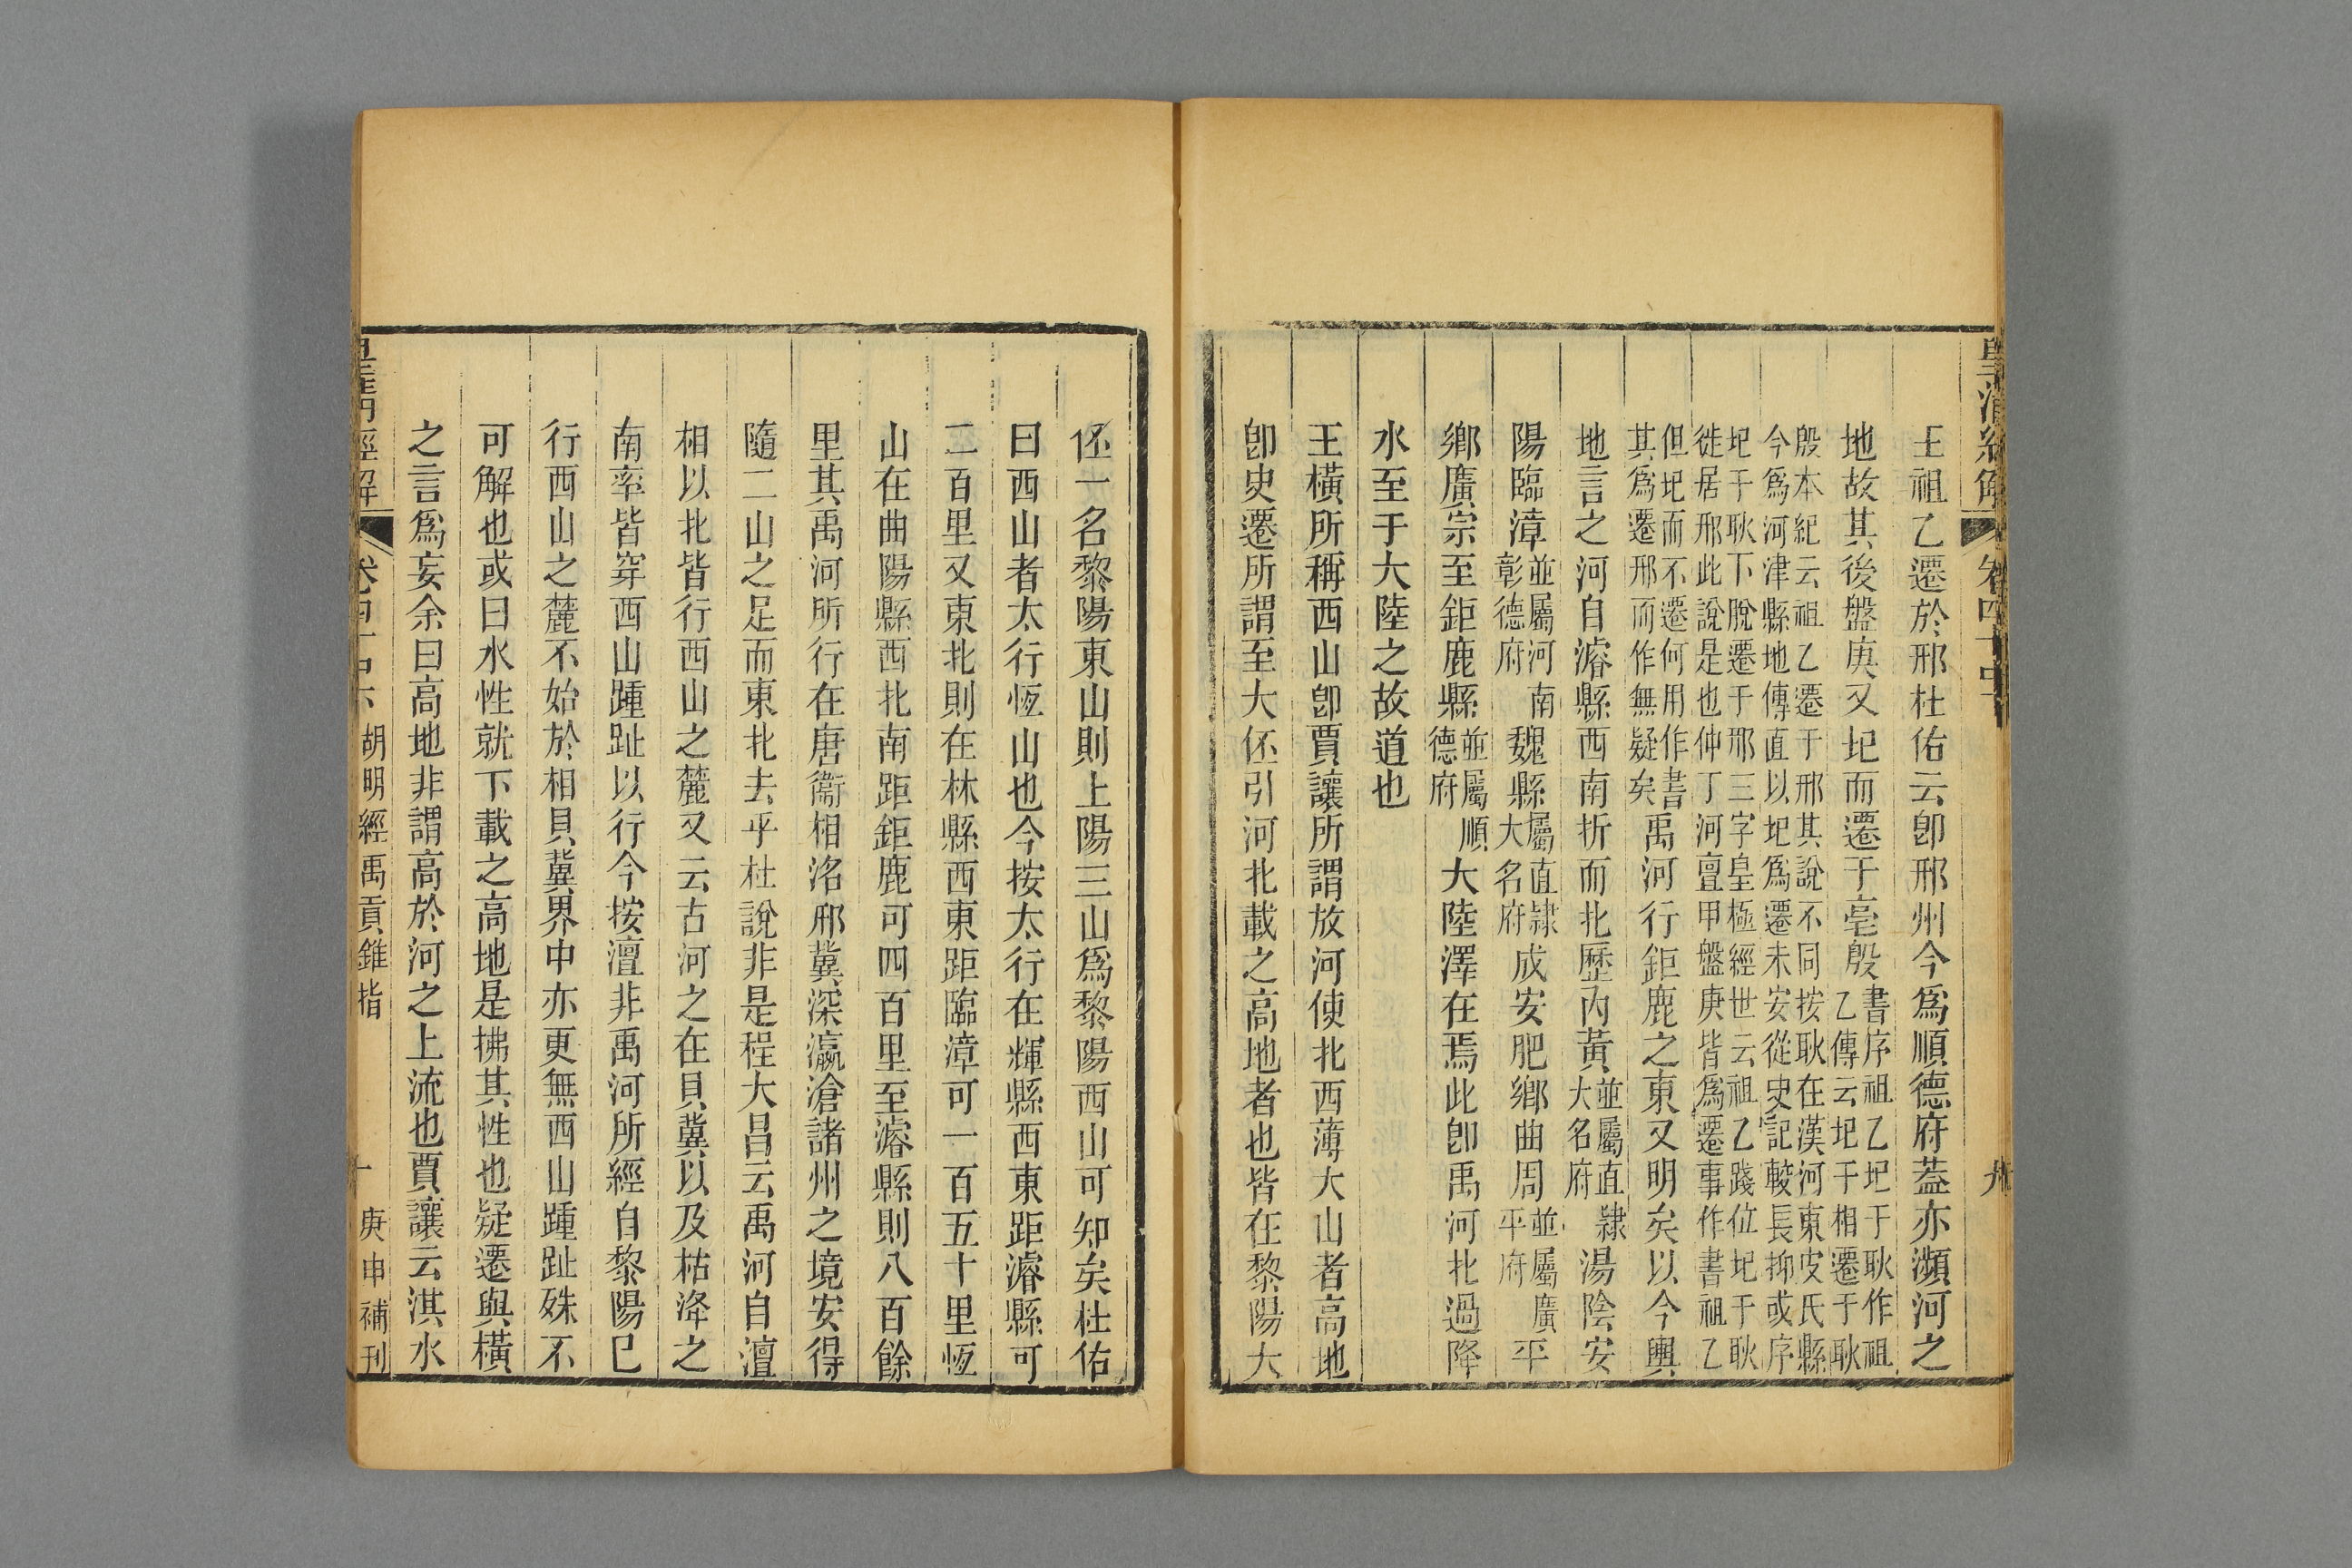 皇清經解 卷四十中 九
王祖乙遷於邢杜佑云卽邢州今爲順德府蓋亦瀕河之
地故其後盤庚又圮而遷于亳殷書序祖乙圮于耿作祖乙傳云圮于相遷于耿
殷本紀云祖乙遷于邢其說不同按耿在漢河東皮氏縣今爲河津縣地傳直以圮爲遷未安從史記較長抑或序
圮于耿下脫遷于邢三字皇極經世云祖乙踐位圮于耿徙居邢此說是也仲丁河亶甲盤庚皆爲遷事作書祖乙
但圮而不遷何用作書其爲遷邢而作無疑矣禹河行鉅鹿之東又明矣以今輿
地言之河自濬縣西南折而北歷內黃並屬直隸大名府湯陰安
陽臨漳並屬河南彰德府魏縣屬直隸大名府成安肥鄉曲周並屬廣平府平
鄉廣宗至鉅鹿縣並屬順德府大陸澤在焉此卽禹河北過降
水至于大陸之故道也
王橫所稱西山卽賈讓所謂放河使北西薄大山者高地
卽史遷所謂至大伾引河北載之高地者也皆在黎陽大
伾一名黎陽東山則上陽三山爲黎陽西山可知矣杜佑
曰西山者太行恆山也今按太行在輝縣西東距濬縣可
二百里又東北則在林縣西東距臨漳可一百五十里恆
山在曲陽縣西北南距鉅鹿可四百里至濬縣則八百餘
里其禹河所行在唐衞相洺邢冀深瀛滄諸州之境安得
隨二山之足而東北去乎杜說非是程大昌云禹河自澶
相以北皆行西山之麓又云古河之在貝冀以及枯洚之
南率皆穿西山踵趾以行今按澶非禹河所經自黎陽已
行西山之麓不始於相貝冀界中亦更無西山踵趾殊不
可解也或曰水性就下載之高地是拂其性也疑遷與橫
之言爲妄余曰高地非謂高於河之上流也賈讓云淇水
皇清經解 卷四十中下 胡明經禹貢錐指 十 庚申補刊